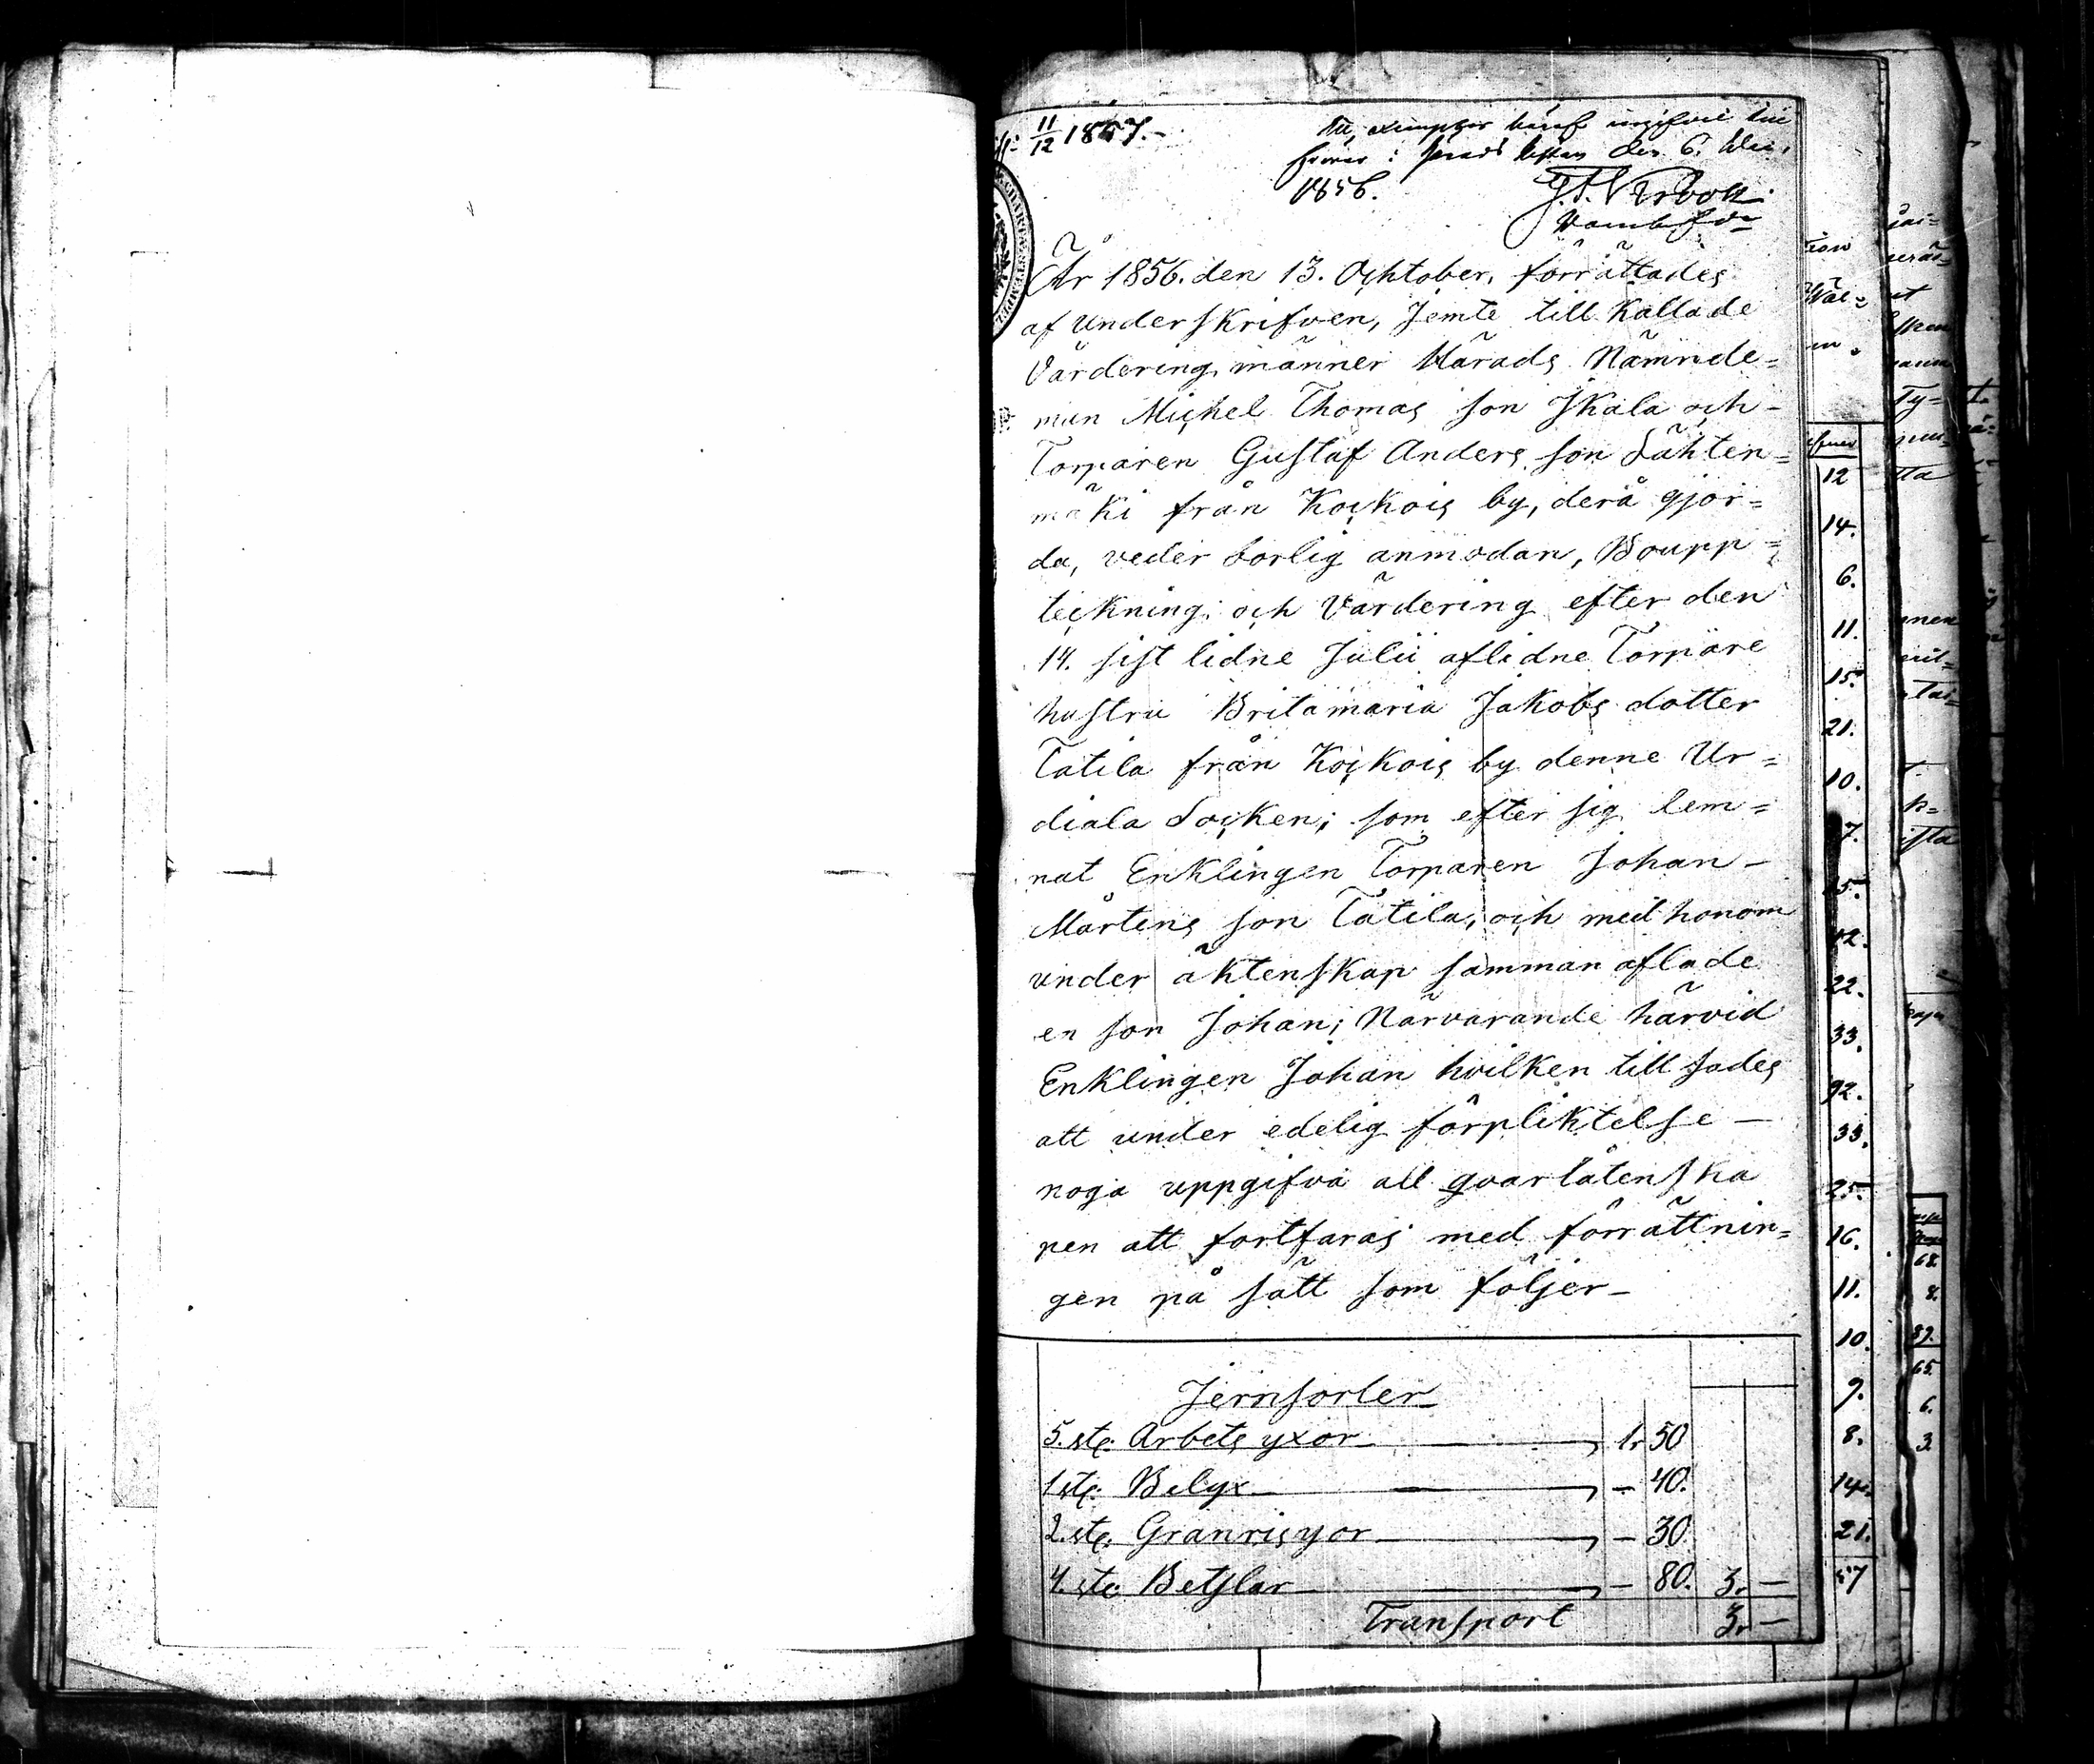 11/12 1857.
den 6.
1856.
År 1856. den 13. Ochtober, förrättades
af underskrifven, Jemte till Kallade
Värdering männer Härads Nämnde=
man Michel Thomas son Skala och
Torparen Gustaf Anders son Lähten=
mäki från Koskois by, derå gjor=
da, veder börlig anmodan, Boupp=
teckning och Värdering efter den
14. sist lidne Julii aflidne Torpare
hustru Britamaria Jakobs dotter
Tatila från Koskois by denne Ur=
diala Socken; som efter sig lem=
nat Enklingen Torparen Johan
Mårtens son Tatila, och med honom
under äktenskap samman aflade
en son Johan; Närvarande härvid
Enklingen Johan hvilken till sades
att under edelig förpliktelse
noga uppgifva all qvarlåtenska
pen att fortfaras med förrättnin=
gen på sätt som följer
Jernsorler
5. st. Arbets yxor 1. 50
1 st. Bilyx — 40.
2. st. Granrisyor — 30.
4. st. Betslar — 80. 3. —
Transport 3. —
12
14.
6.
11.
15.
21.
10.
7.
15.
12.
22.
33.
92.
33.
25.
16.
11.
10.
9.
8.
14.
21.
57